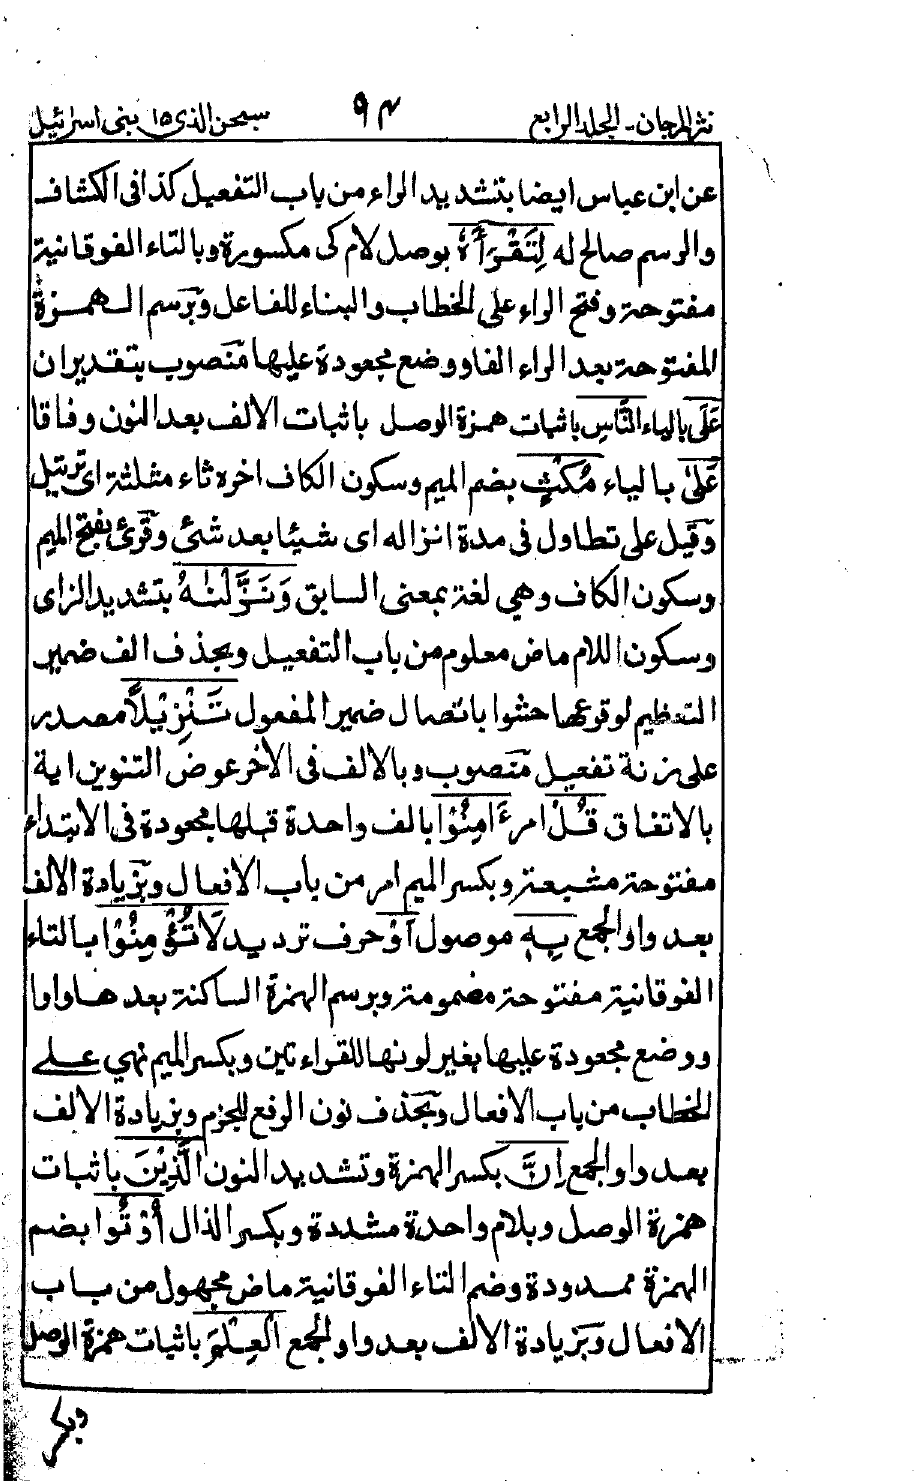 نثر المرجان - الجلد الرابع ٩٤ سبحن الذى ١٥ بنى اسرائيل
عن ابن عباس ايضا بتشديد الراء من باب التفعيل كذا فى الكشاف
والرسم صالح له لِتَقْرَأَهٗ بوصل لام كى مكسورة وبالتاء الفوقانية
مفتوحة وفتح الراء على الخطاب والبناء للفاعل وبرسم الهمزة
المفتوحة بعد الراء الفا ووضع مجعودة عليها منصوب بتقدير ان
عَلَى بالياء النَّاسِ باثبات همزة الوصل باثبات الالف بعد النون وفاقا
عَلىٰ بالياء مُكْثٍ بضم الميم وسكون الكاف اخره ثاء مثلثة اى ترتيل
وقيل على تطاول فى مدة انزاله اى شيئا بعد شئ وقرئ بفتح الميم
وسكون الكاف وهي لغة بمعنى السابق وَنَزَّلْنٰهُ بتشديد الزاى
وسكون اللام ماض معلوم من باب التفعيل وبحذف الف ضمير
التعظيم لوقوعها حشوا باتصال ضمير المفعول تَنْزِيْلًا مصدر
على زنة تفعيل منصوب وبالالف فى الاخر عوض التنوين اية
بالاتفاق قُلْ امر ءَامِنُوْا بالف واحدة قبلها مجعودة فى الابتداء
مفتوحة مشبعة وبكسر الميم امر من باب الافعال وبزيادة الالف
بعد واو الجمع بِهٖ موصول اَوْ حرف ترديد لَا تُؤْمِنُوْا بالتاء
الفوقانية مفتوحة مضمومة وبرسم الهمزة الساكنة بعدها واوا
ووضع مجعودة عليها بغير لونها للقراءتين وبكسر الميم نهي على
الخطاب من باب الافعال وبحذف نون الرفع للجزم وبزيادة الالف
بعد واو الجمع اِنَّ بكسر الهمزة وتشديد النون الَّذِيْنَ باثبات
همزة الوصل وبلام واحدة مشددة وبكسر الذال أُوْتُوا بضم
الهمزة ممدودة وضم التاء الفوقانية ماض مجهول من باب
الافعال وبزيادة الالف بعد واو الجمع الْعِلْمَ باثبات همزة الوصل